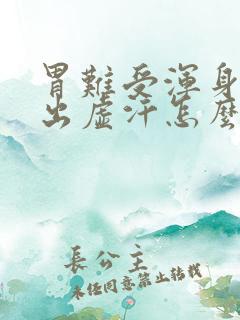 胃難受渾身
出虛汗怎麼
長公主
未經同意禁止轉載